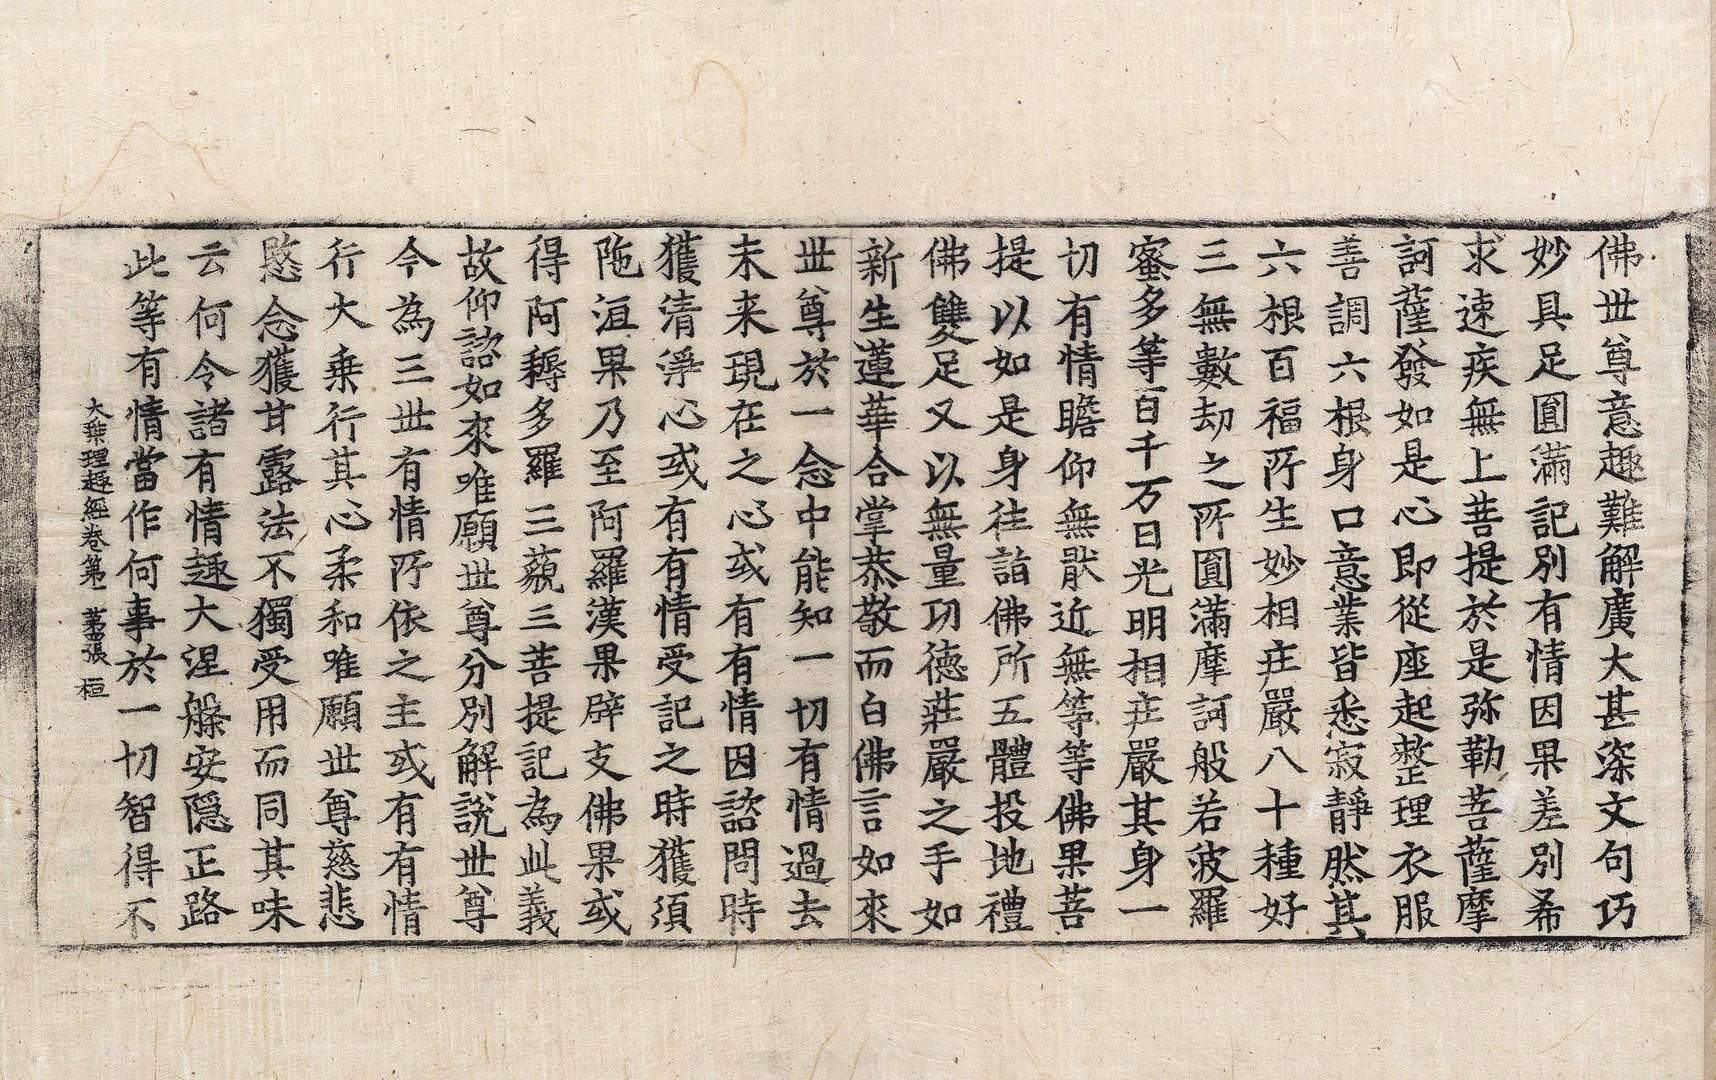 佛世尊意趣難解廣大甚深文句巧
妙具足圓滿記別有情因果差別希
求速疾無上菩提於是弥勒菩薩摩
訶薩發如是心即從座起整理衣服
善調六根身口意業皆悉寂靜然其
六根百福所生妙相庄嚴八十種好
三無數劫之所圓滿摩訶般若波羅
蜜多等百千万日光明相庄嚴其身一
切有情瞻仰無猒近無等等佛果菩
提以如是身往詣佛所五體投地禮
佛雙足又以無量功德莊嚴之手如
新生蓮華合掌恭敬而白佛言如來
世尊於一念中能知一切有情過去
未来現在之心或有有情因諮問時
獲清淨心或有有情受記之時獲須
陁洹果乃至阿羅漢果辟支佛果或
得阿耨多羅三藐三菩提記為此義
故仰諮如來唯願世尊分別解說世尊
今為三世有情所依之主或有有情
行大乗行其心柔和唯願世尊慈悲
愍念獲甘露法不獨受用而同其味
云何令諸有情趣大涅槃安隱正路
此等有情當作何事於一切智得不
大乗理趣經卷第一 第張 桓